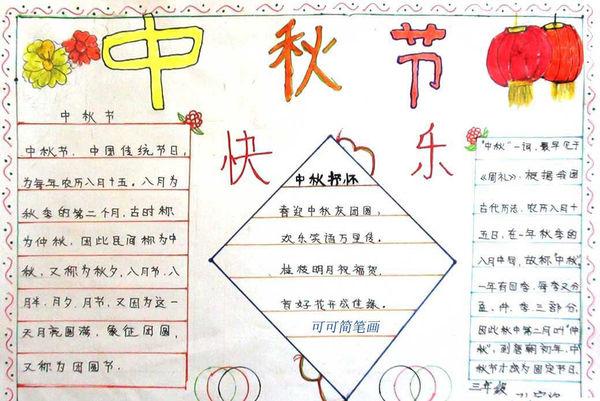 中秋节
快乐
中秋节
中秋节，中国传统节日，
为每年农历八月十五。八月为
秋季的第二个月，古时称
为仲秋，因此民间称为中
秋，又称为秋夕，八月节，八
月半，月夕，月节，又因为这一
天月亮圆满，象征团圆，
又称为团圆节。
中秋抒怀
喜迎中秋友团圆，
欢乐笑语万里传。
桂枝明月祝福贺，
首好花开成佳缘。
可可简笔画
"中秋"一词，最早见于
《周礼》，根据我国
古代历法，农历八月十
五日，在一年秋季的
八月中旬，故称"中秋"。
一年有四季，每季又分
孟，仲，季三部分，
因此秋中第二月叫"仲
秋"，到唐朝初年，中
秋节才成为固定节日。
三年级